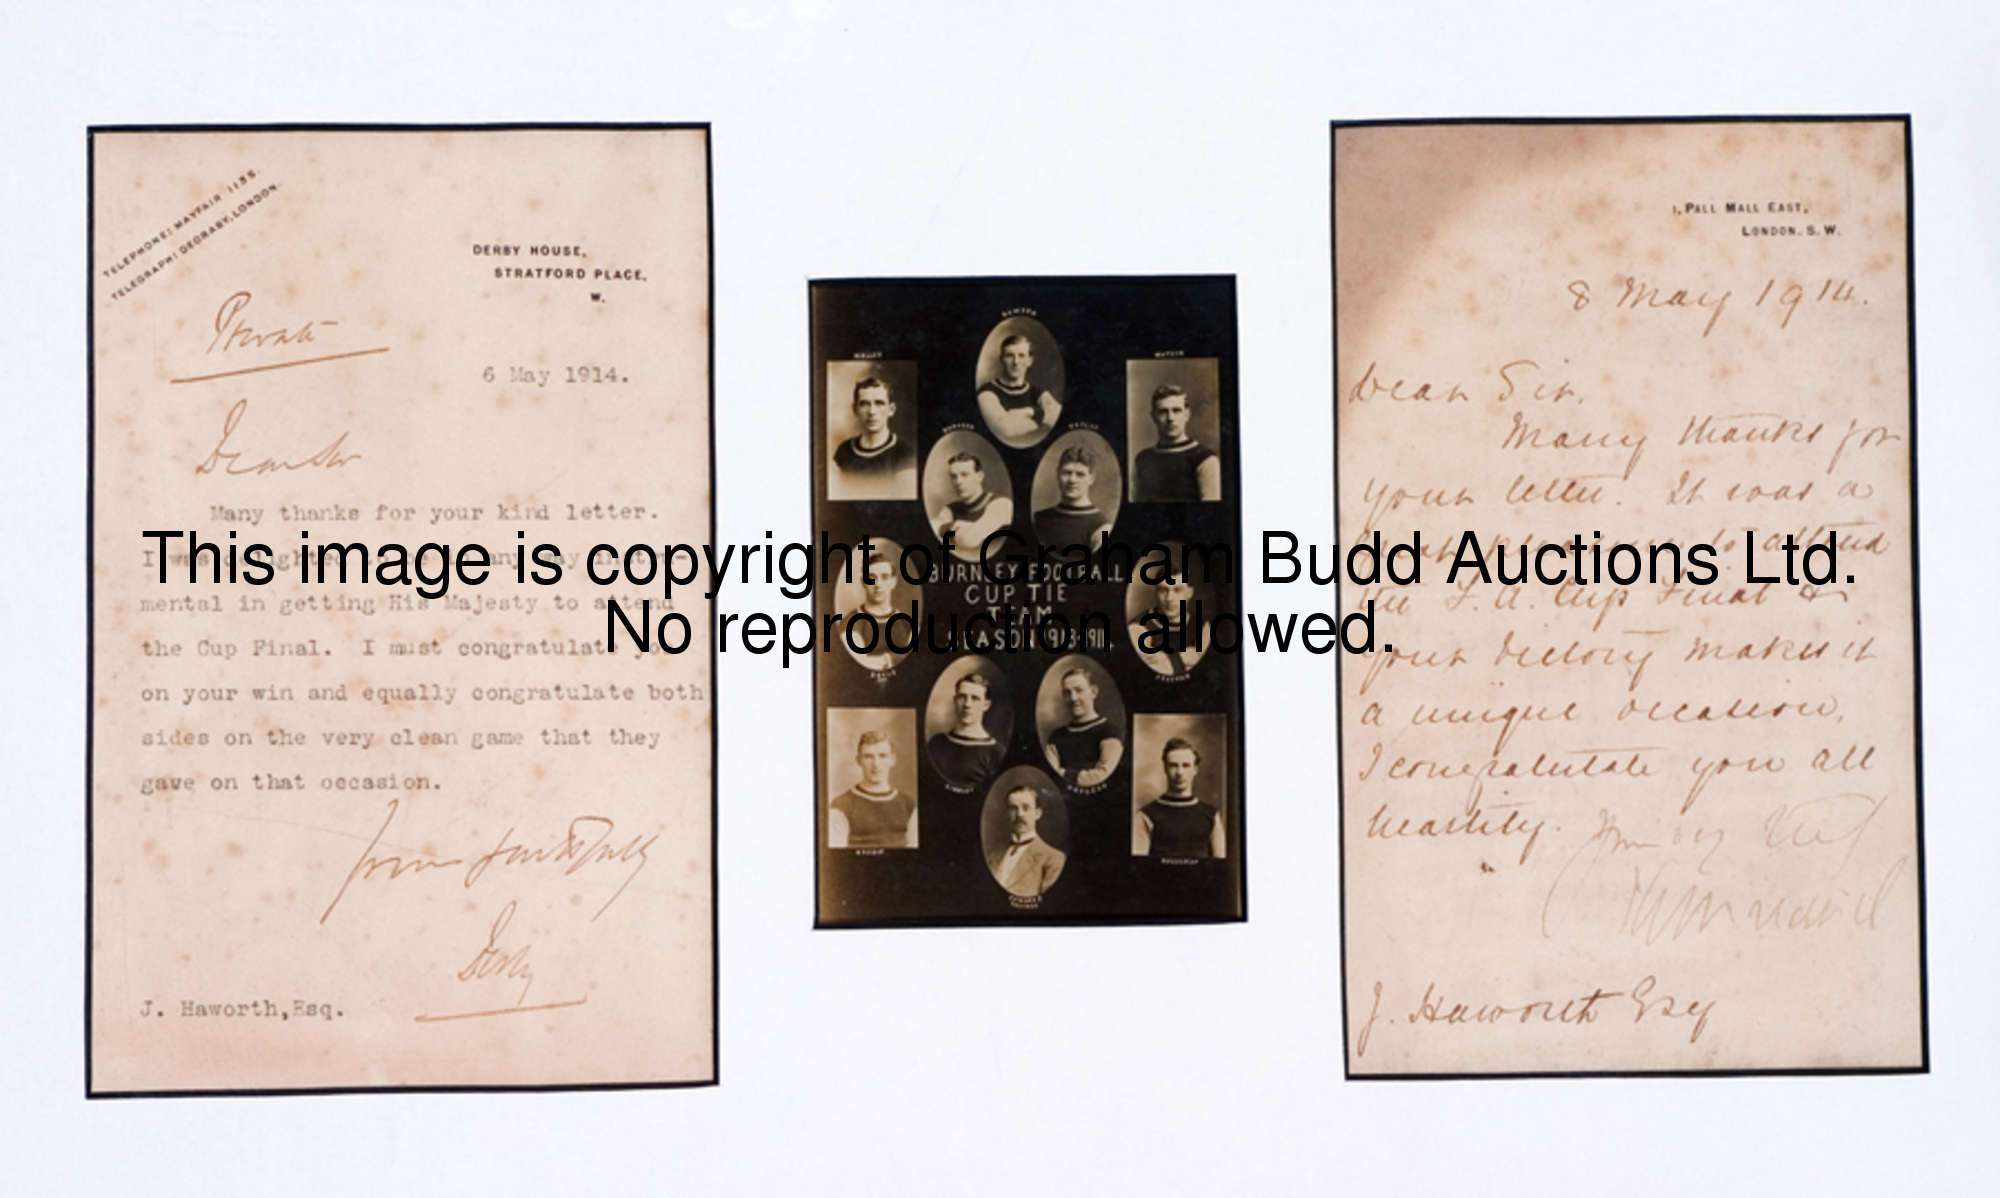 TELEPHONE: MAYFAIR 1135.
TELEGRAPH: DEORABY, LONDON.
DERBY HOUSE,
STRATFORD PLACE,
W.
Private
6 May 1914.
Dear Sir
Many thanks for your kind letter.
I was delighted to be in any way instru-
mental in getting His Majesty to attend
the Cup Final. I must congratulate you
on your win and equally congratulate both
sides on the very clean game that they
gave on that occasion.
Yours faithfully
Derby
J. Haworth, Esq.
BURNLEY FOOTBALL
CUP TIE
TEAM
SEASON
1, PALL MALL EAST,
LONDON. S. W.
8 May 1914.
Dear Sir,
Many thanks for
your letter. It was a
great pleasure to attend
the F. A. Cup Final &
your victory makes it
a unique occasion,
I congratulate you all
heartily.
J. Haworth Esq
This image is copyright of Graham Budd Auctions Ltd.
No reproduction allowed.